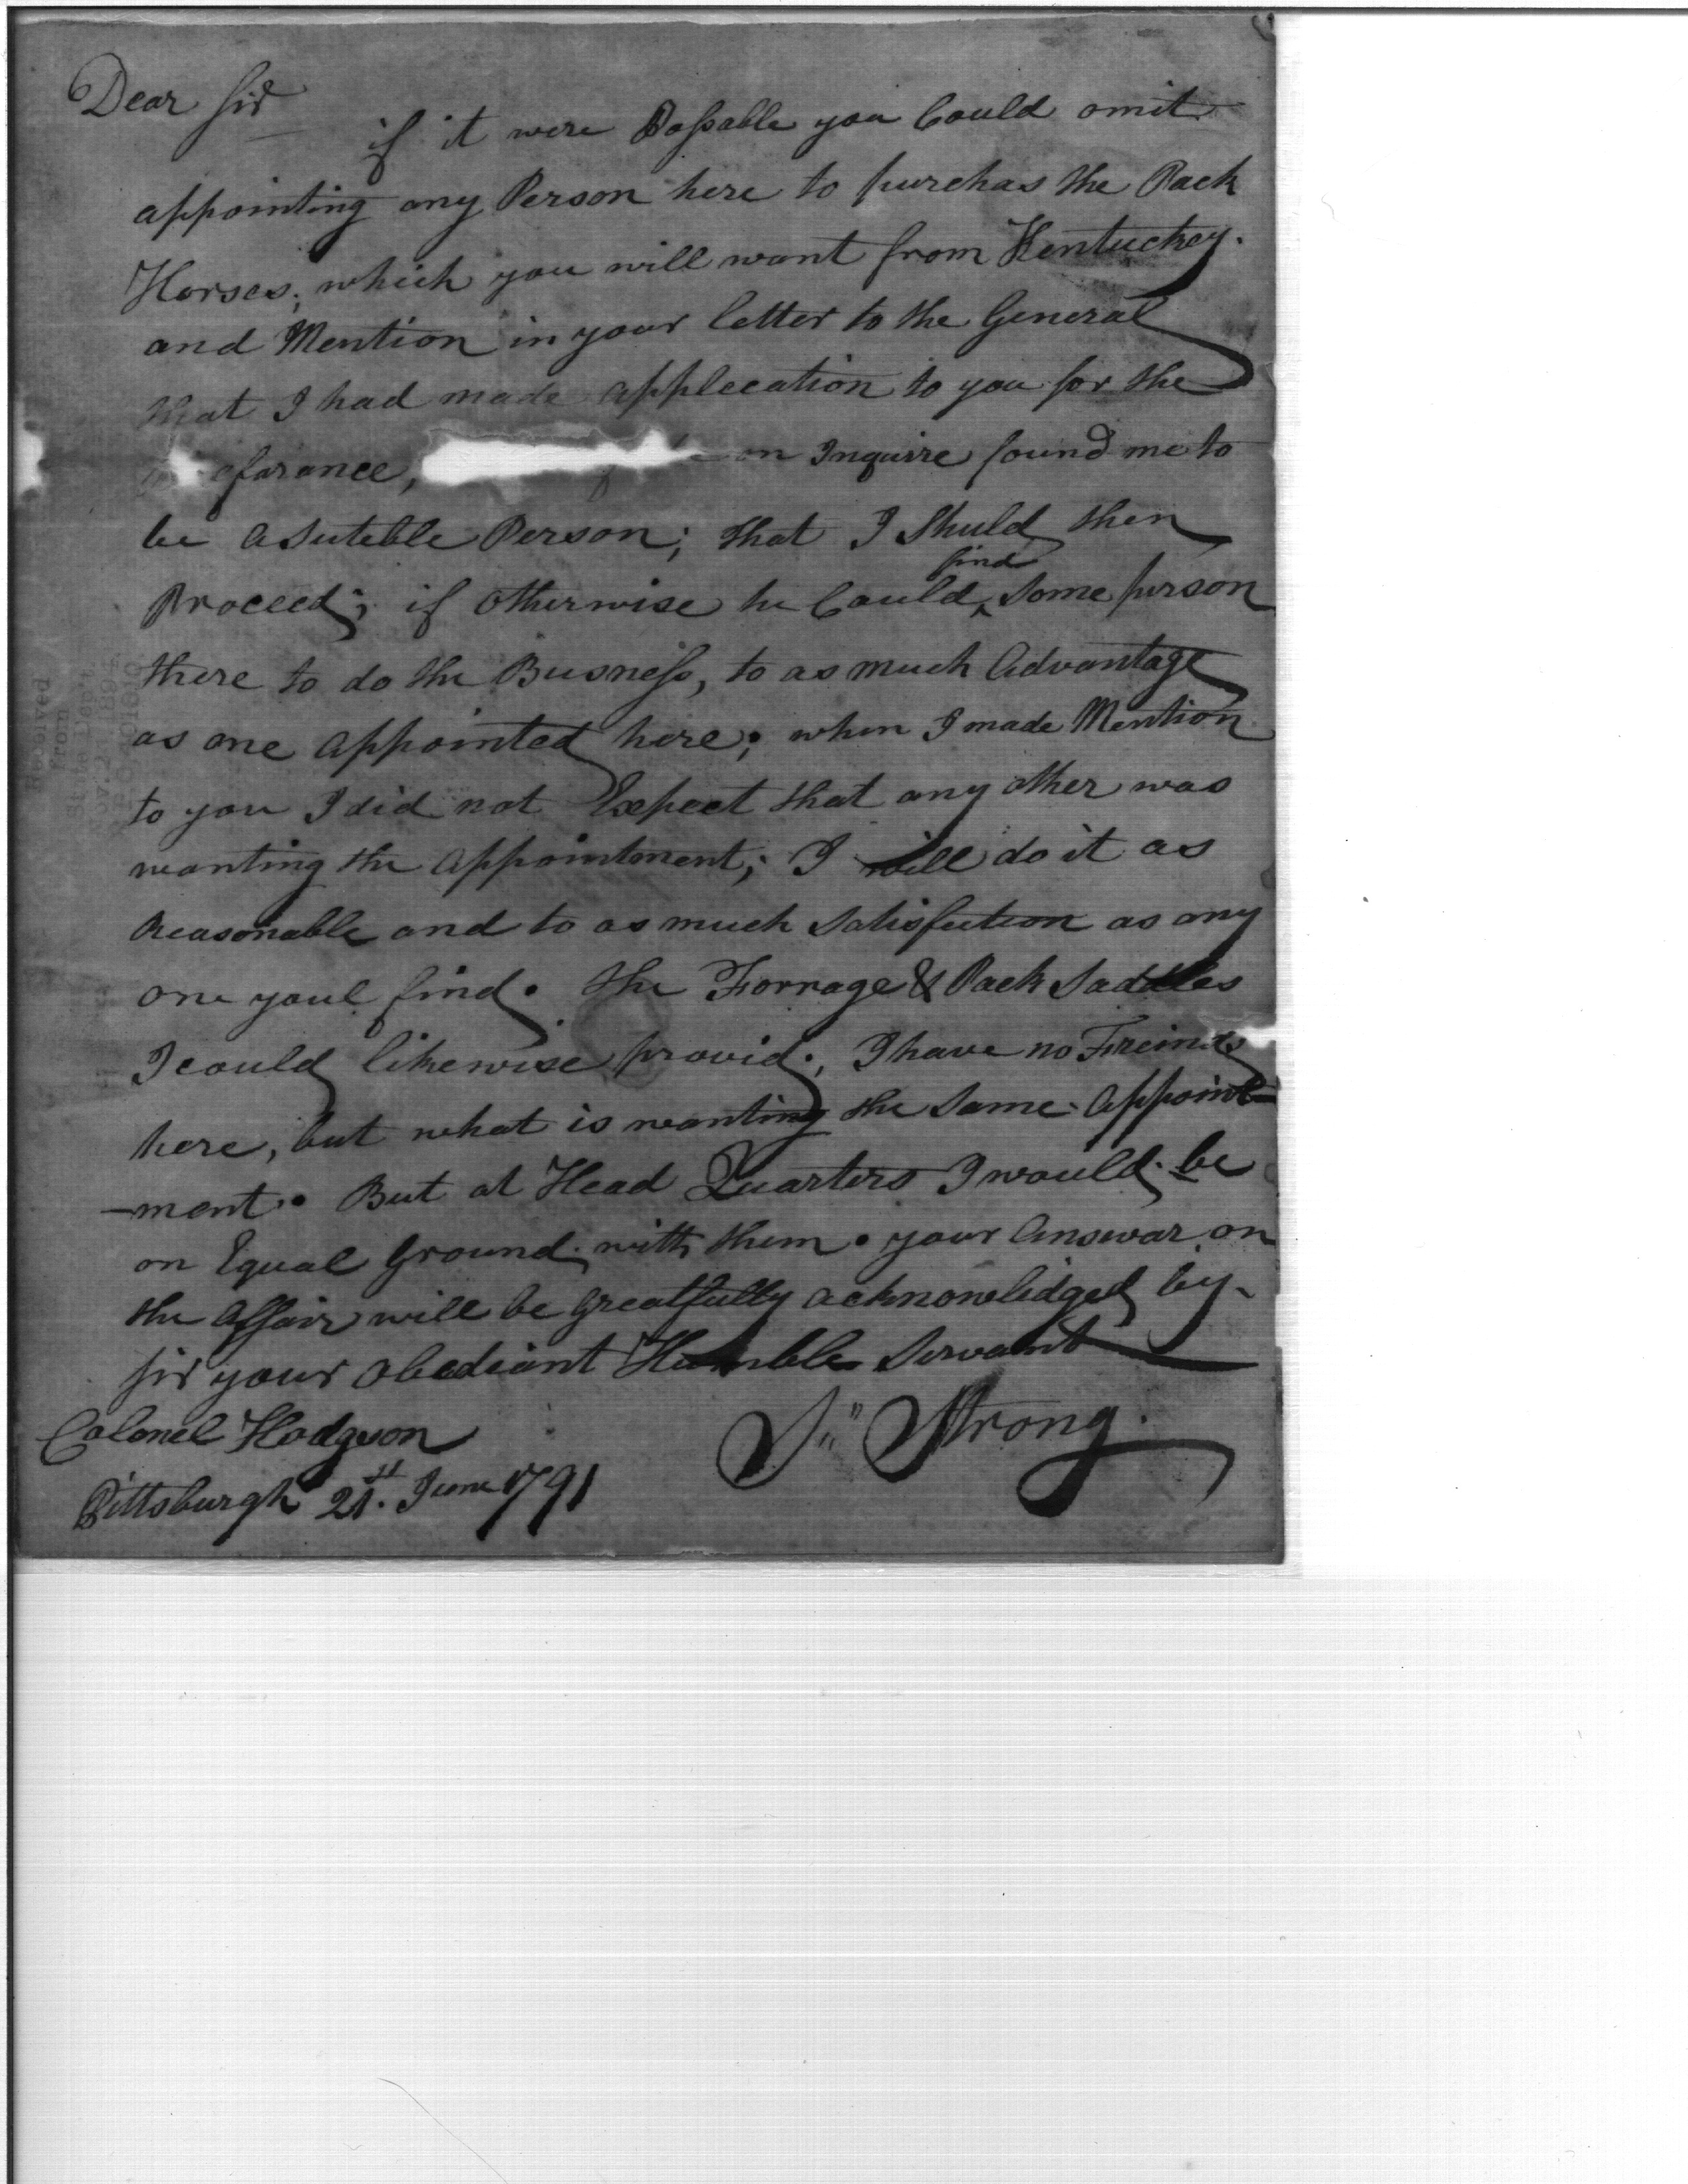 Dear Sir
if it were Possable you Could omit
appointing any Person here to purchas the Pack
Horses, which you will want from Kentuckey.
and Mention in your letter to the General
that I had made applecation to you for the
efarance, on Inquire found me to
be a Suteble Person; that I Shuld then
Proceed; if otherwise he Could ^ some person
find
there to do the Busness, to as much Advantage
as one appointed here; when I made Mention
to you I did not Expect that any other was
wanting the appointment; I will do it as
Reasonable and to as much Satisfection as any
one youl find. the Forrage & Pack Saddles
I could likewise provid; I have no Freinds
here, but what is wanting the Same appoint-
-ment. But at Head Quarters I would be
on Equal Ground with them. your Answar on
the affair will be greatfully acknowledged by
Sir your obediant Humble Servant
Colonel Hodgson
Strong.
Pittsburgh 21st. June 1791
Received
from
State Dep't.